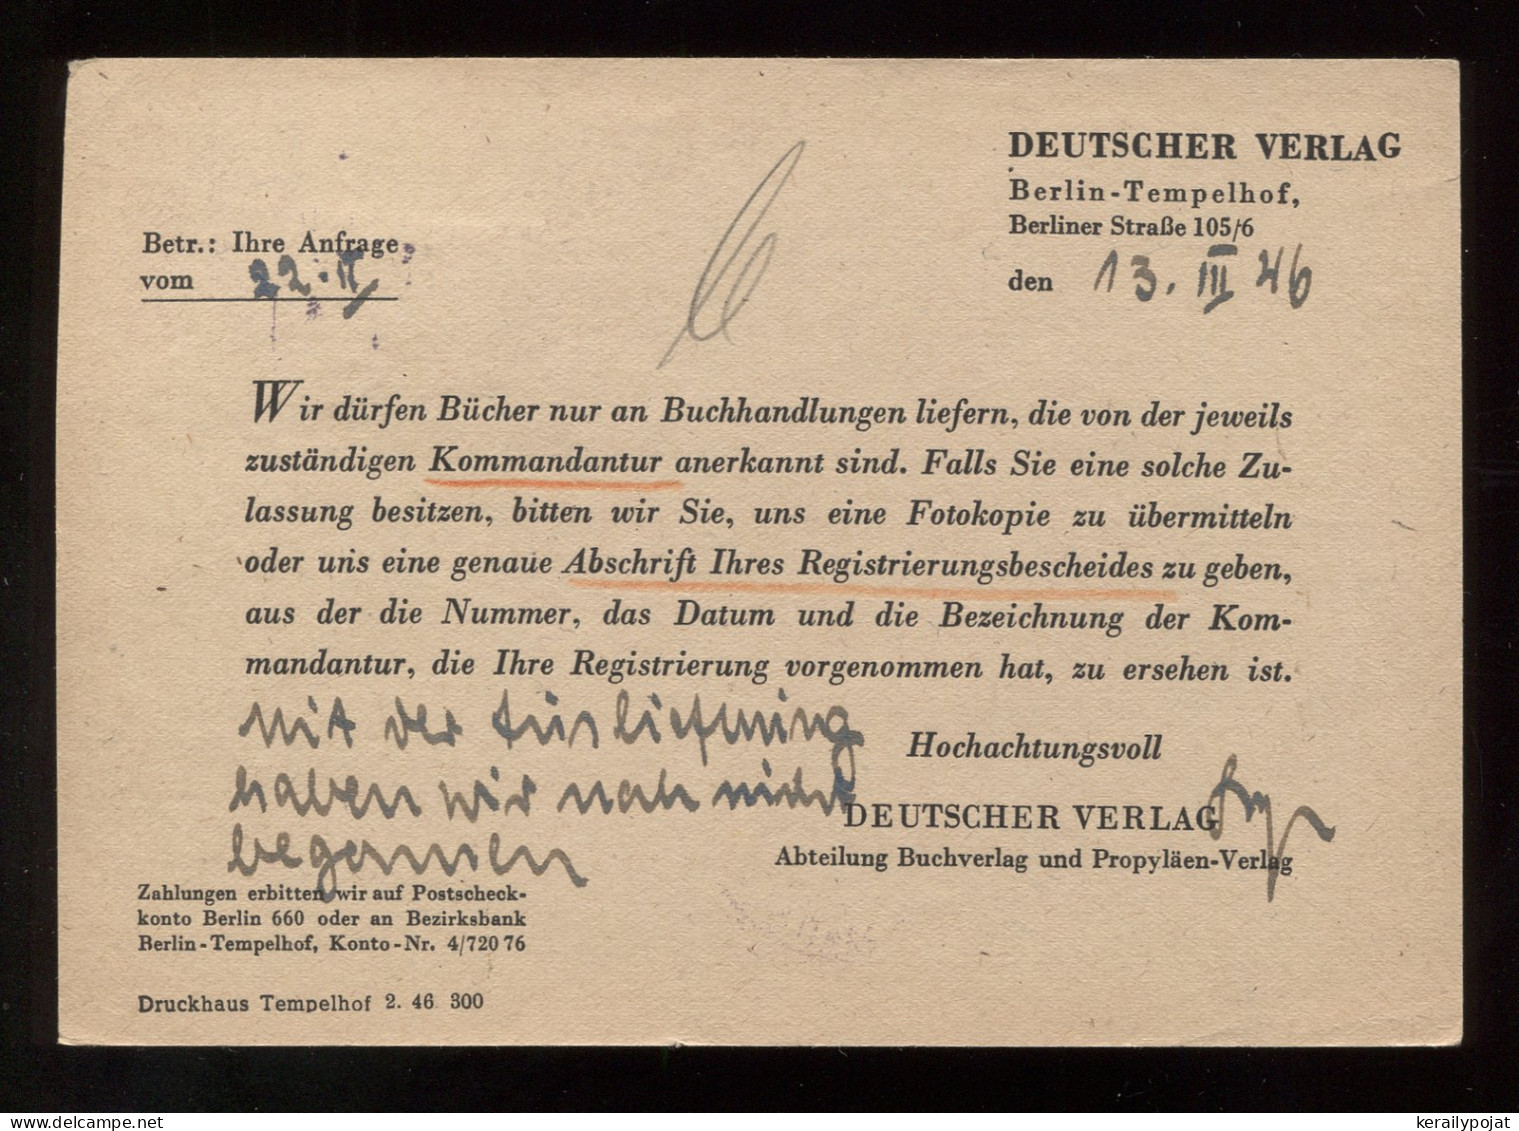 DEUTSCHER VERLAG
Berlin-Tempelhof,
Berliner Straße 105/6
den 13. III 46
Betr.: Ihre Anfrage
vom 22. II
Wir dürfen Bücher nur an Buchhandlungen liefern, die von der jeweils
zuständigen Kommandantur anerkannt sind. Falls Sie eine solche Zu-
lassung besitzen, bitten wir Sie, uns eine Fotokopie zu übermitteln
oder uns eine genaue Abschrift Ihres Registrierungsbescheides zu geben,
aus der die Nummer, das Datum und die Bezeichnung der Kom-
mandantur, die Ihre Registrierung vorgenommen hat, zu ersehen ist.
Mit der Auslieferung
haben wir noch nicht
begonnen
Hochachtungsvoll
DEUTSCHER VERLAG
Abteilung Buchverlag und Propyläen-Verlag
Zahlungen erbitten wir auf Postscheck-
konto Berlin 660 oder an Bezirksbank
Berlin-Tempelhof, Konto-Nr. 4/720 76
Druckhaus Tempelhof 2. 46 300
kerailypojat